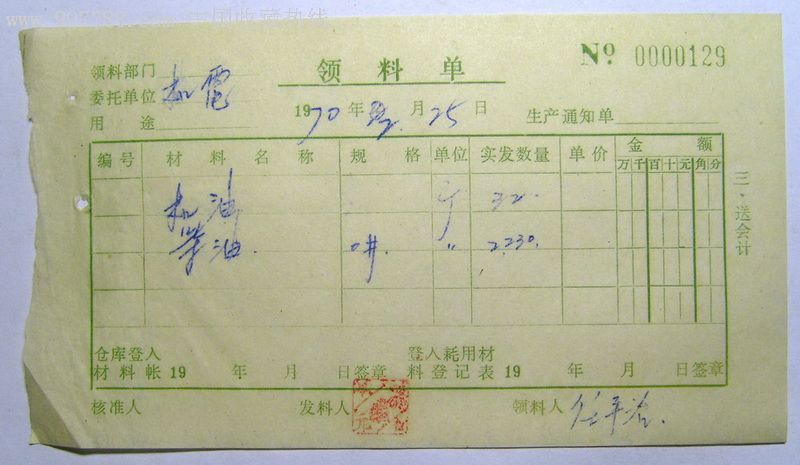 中国收藏热线
领料单
№ 0000129
领料部门
委托单位 机電
用途
1970年 月25日
生产通知单
编号 材料名称 规格 单位 实发数量 单价 金额
万千百十元角分
机油 斤 32.
柴油. 〃 2230.
三·送会计
仓库登入 登入耗用材
材料帐19 年 月 日签章 料登记表19 年 月 日签章
核准人 发料人 领料人